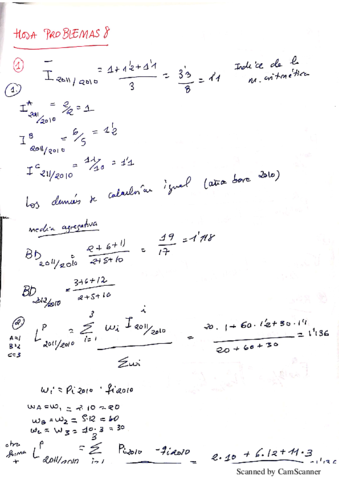 HOJA PROBLEMAS 8
① Ī 2011/2010 = 1+1'2+1'1 / 3 = 3'3 / 3 = 1'1 Indice de la m. aritmética
①
I^A 2011/2010 = 2/2 = 1
I^B 2011/2010 = 6/5 = 1'2
I^C 2011/2010 = 11/10 = 1'1
Los demás se calculan igual (año base 2010)
media agregativa
BD 2011/2010 = 2+6+11 / 2+5+10 = 19 / 17 = 1'118
BD 2012/2010 = 3+6+12 / 2+5+10
②
A=1
B=2
C=3
L^P 2011/2010 = Σ i=1 3 wi I^i 2011/2010 / Σwi = 20.1+60.1'2+30.1'1 / 20+60+30 = 1'136
wi = Pi2010 · qi2010
wA=w1 = 2·10=20
wB=w2 = 5·12=60
wC=w3 = 10·3=30
otra forma L^P 2011/2010 = Σ i=1 3 Pi2010 · qi2010 2·10+6·12+11·3
Scanned by CamScanner